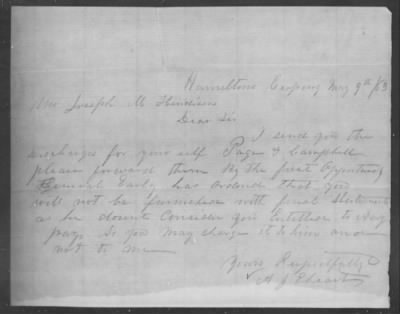 Hamiltons Crossing May 9th /63
Mr Joseph M
Dear Sir
I send you the
discharges for your self Page & Campbell
please forward them by the first Opportunity
General Early has ordered that you
will not be furnished with final Statements
as he doesnt Consider you Entitled to any
pay. So you may charge it to him and
not to me
Yours Respectfully
A J